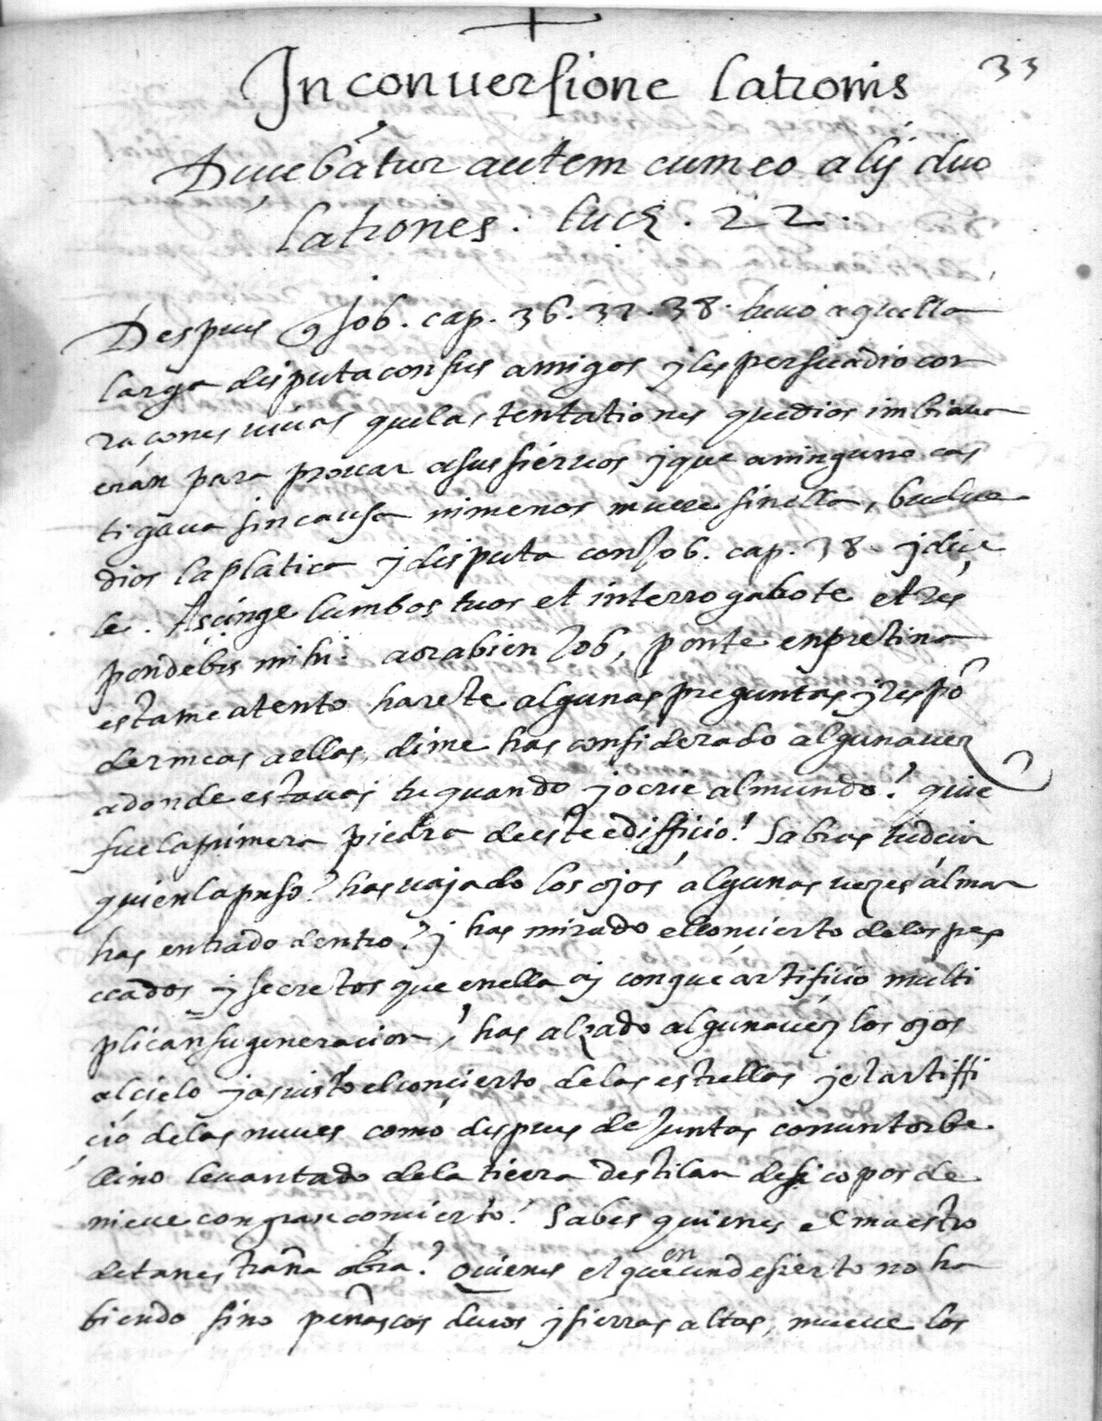 33
In conuersione latronis
Ducebãtur autem cum eo alij duo
latrones. luc. 22.
Despues q Job. cap. 36. 37. 38. tuuo aquella
larga disputa con sus amigos y les persuadio con
raçones uiuas que las tentationes que dios imbiaua
eran para prouar a sus sieruos y que a ninguno cas
tigaua sin causa ni menos muere sin ella, buelue
dios la platica y disputa con Job. cap. 38. y diçe
le. Açinge lumbos tuos et interrogabo te et res
pondebis mihi. aora bien Job, ponte en pretina
estame atento harete algunas preguntas y respõ
dermeas a ellas, dime has considerado alguna uez
adonde estauas tu quando yo crie al mundo? quie
fue la primera piedra de este edifficio? Sabras tu deçir
quien la puso? has uajado los ojos algunas uezes al mar
has entrado dentro? y has mirado el conçierto de los pes
cados y secretos que en ella ay con que artifiçio multi
plican su generacion, has alzado alguna uez los ojos
al cielo y as uisto el conçierto de las estrellas y el artiffi
çio de las nuues como despues de Juntas con un torbe
llino leuantado de la tierra destilan de si copos de
nieue con gran conçierto? Sabes quien es el maestro
de tan estraña obra? Quien es el que en un desierto no ha
biendo sino peñascos duros y sierras altas, mueue los